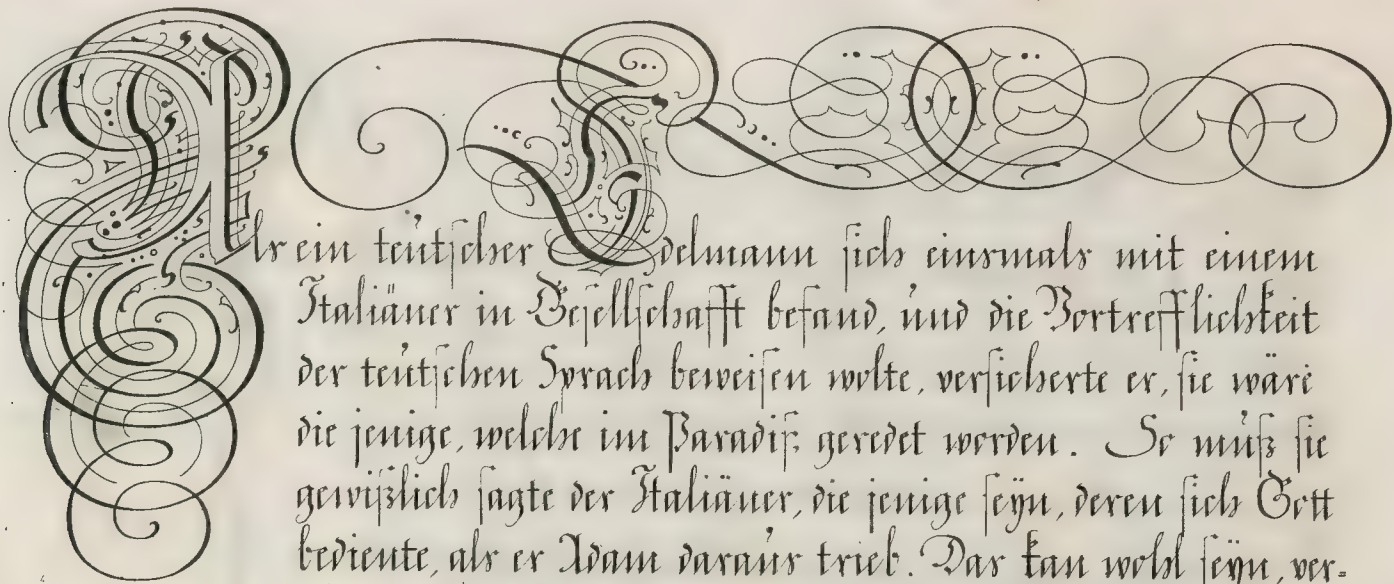 Als ein teutscher Edelmann sich einsmals mit einem
Italiäner in Gesellschafft befand, und die Vortrefflichkeit
der teutschen Sprach beweisen wolte, versicherte er, sie wäre
die jenige, welche im Paradiß geredet worden. So muß sie
gewißlich sagte der Italiäner, die jenige seyn, deren sich Gott
bediente, als er Adam daraus trieb. Das kan wohl seyn, ver=